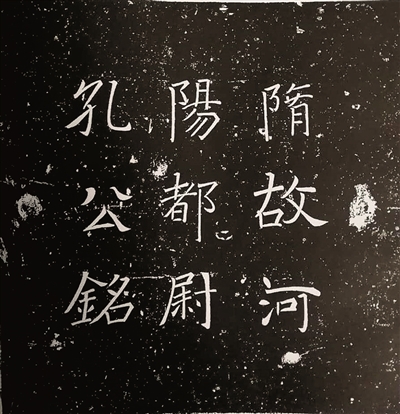 隋故河
陽都尉
孔公銘